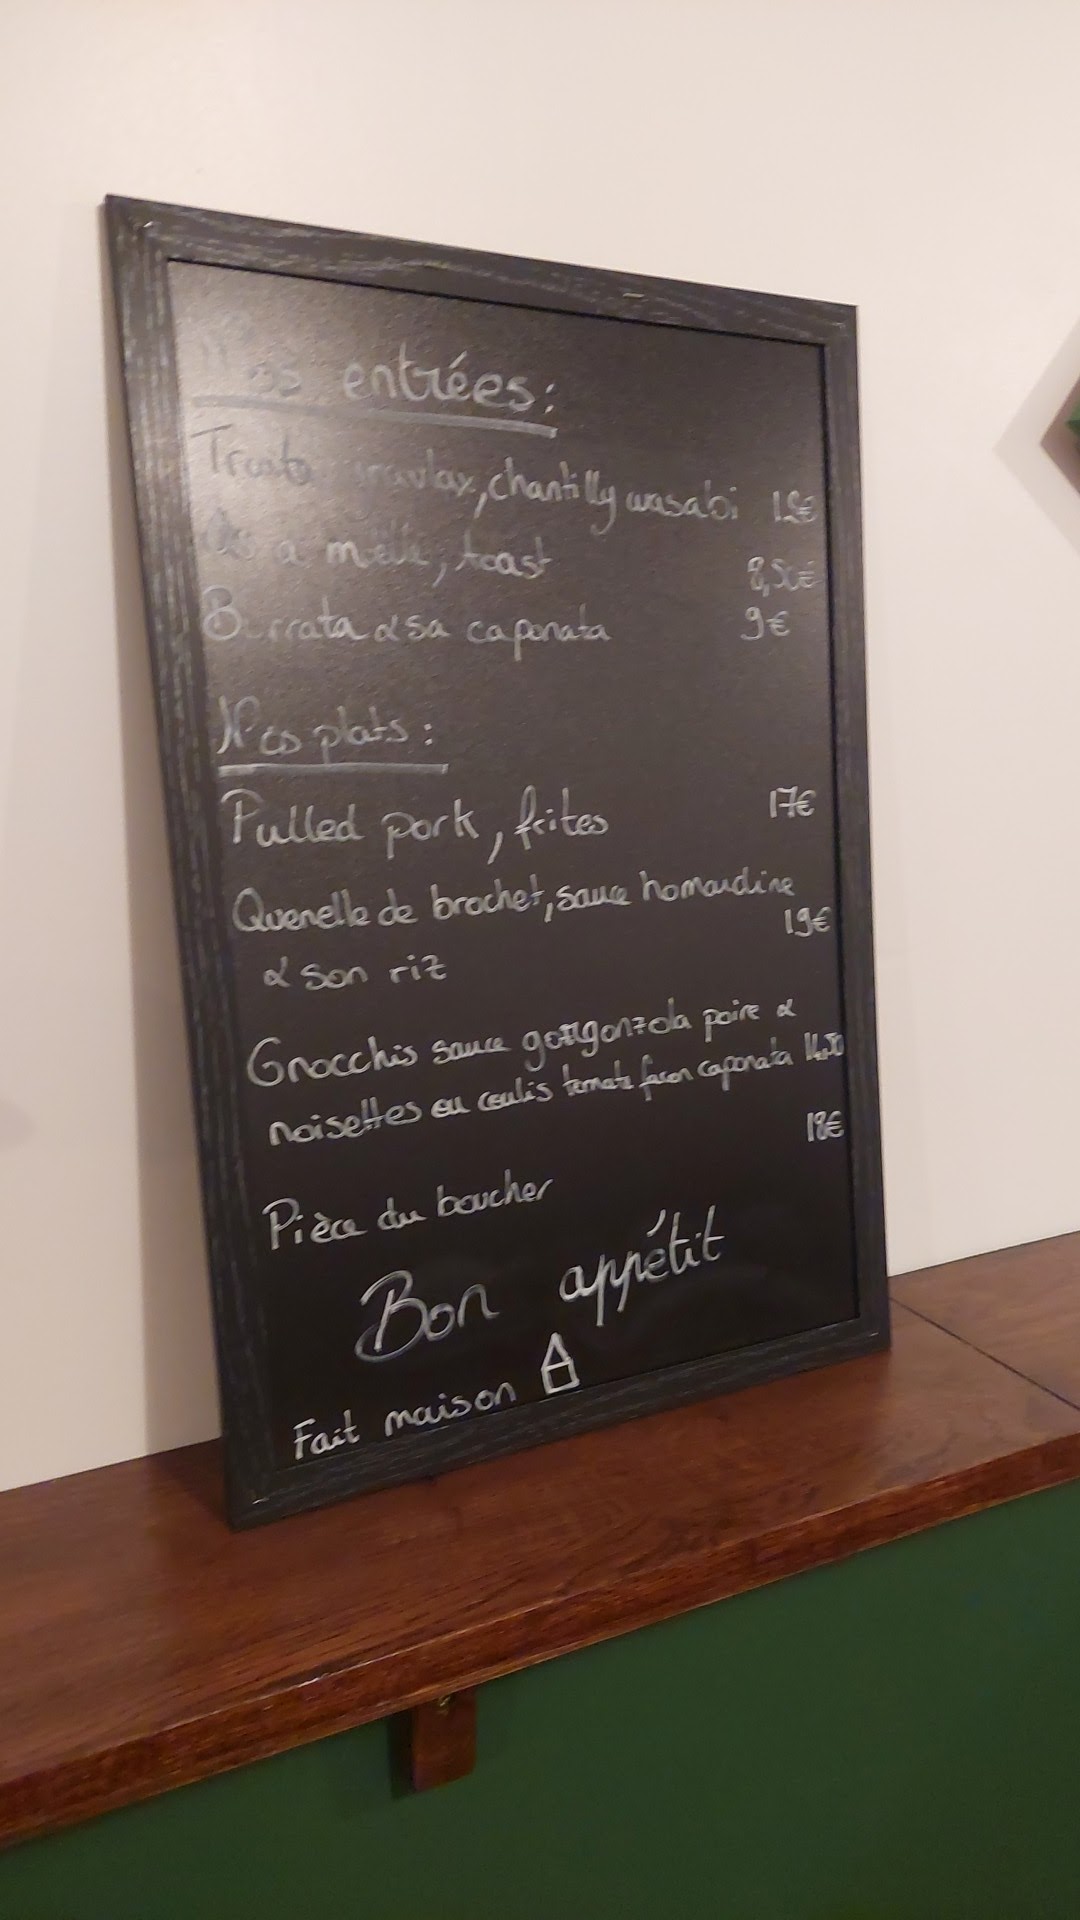 Nos entrées :
Truite gravlax, chantilly wasabi
Os a melle, toast 8,50€
Burrata & sa caponata 9€
Nos plats :
Pulled pork, frites 17€
Quenelle de brochet, sauce homardine
19€
& son riz
Gnocchis sauce gorgonzola poire &
noisettes ou coulis tomate façon caponata
18€
Pièce du boucher
Bon appétit
Fait maison